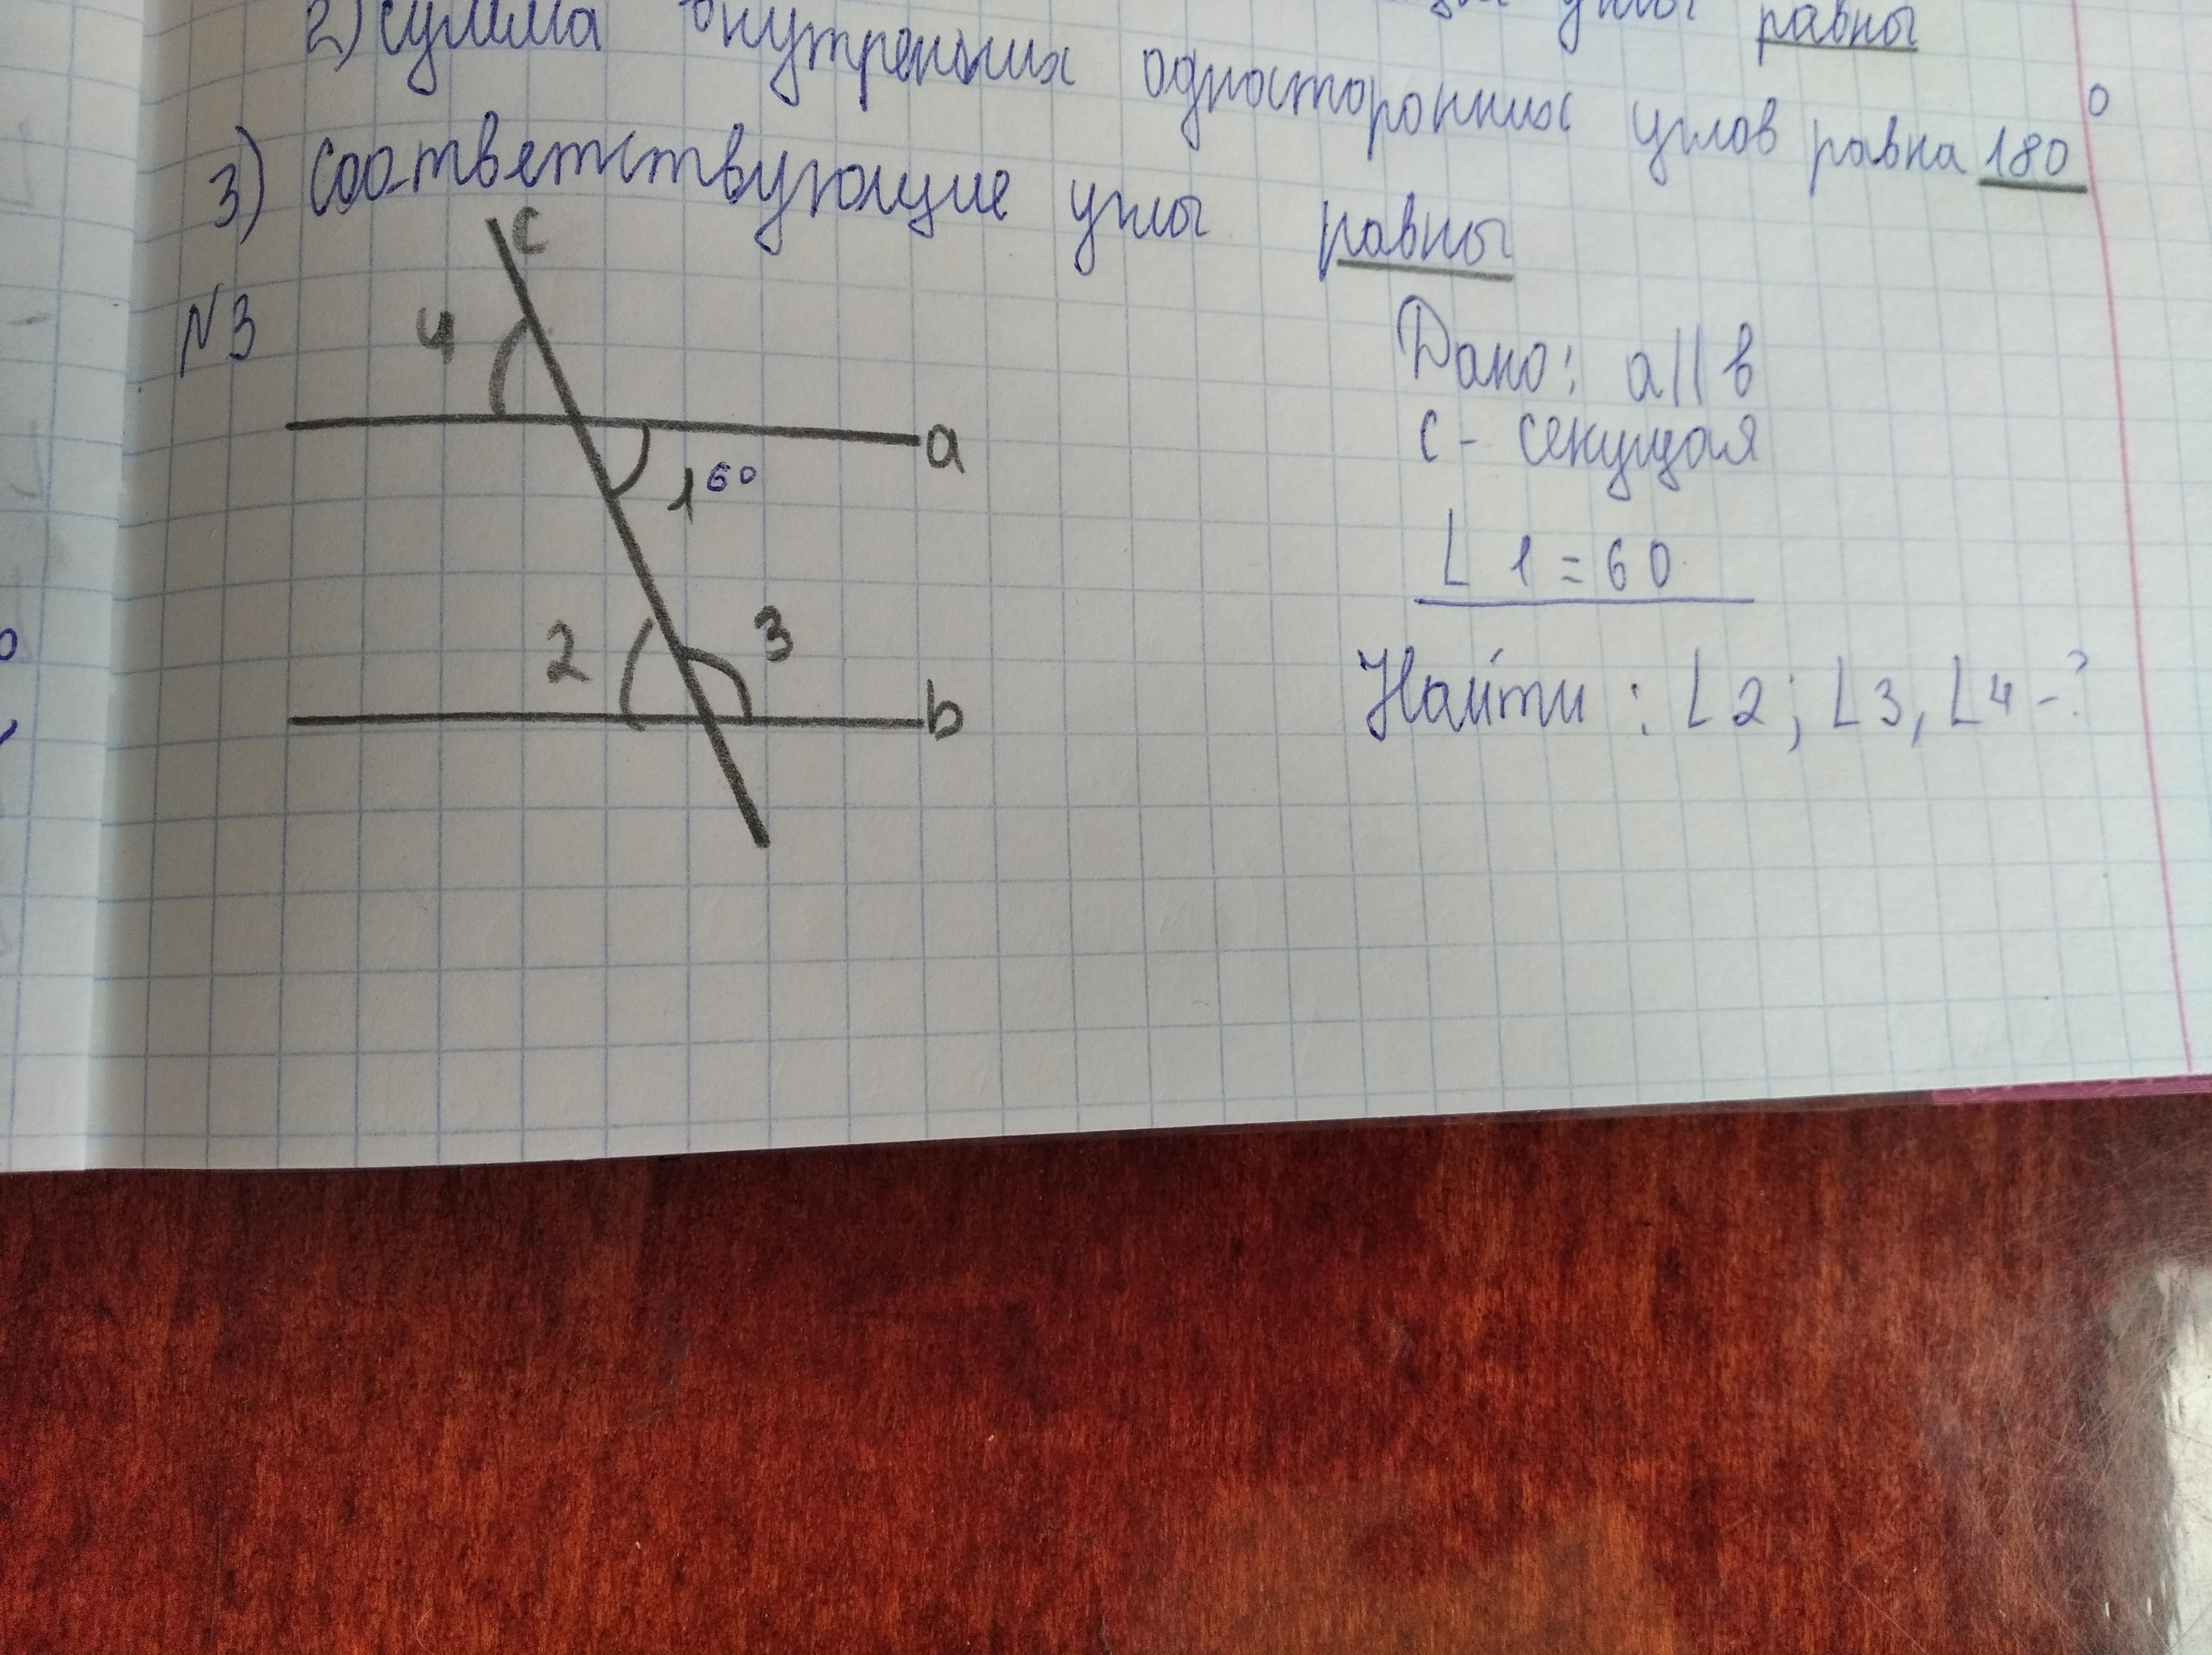 углы равны
2) сумма внутренних односторонних углов равна 180°
3) соответствующие углы равны
N3
c
4
a
1 60
2
3
b
Дано: a || в
с - секущая
∟ 1 = 60
Найти : ∟2; ∟3, ∟4 -?